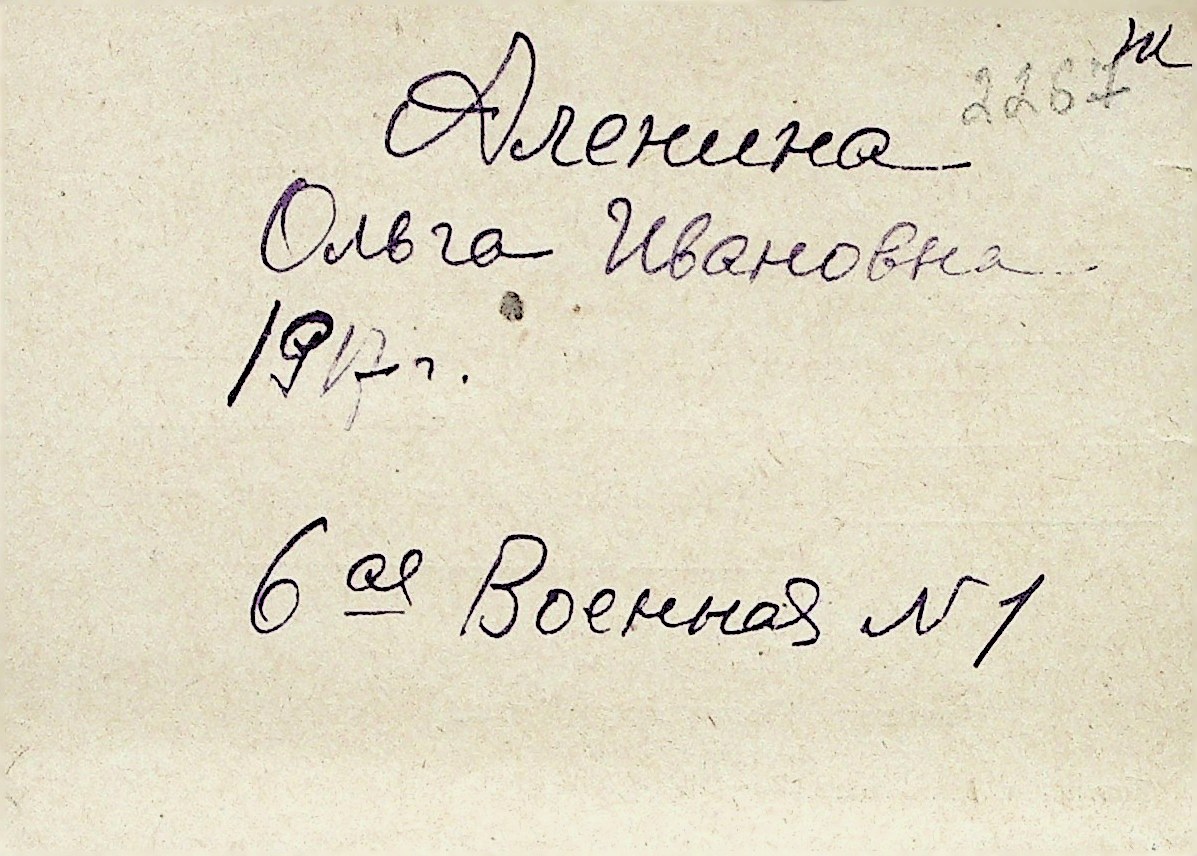 2267
Аленина
Ольга Ивановна
1917 г.
6 ая Военная N 1